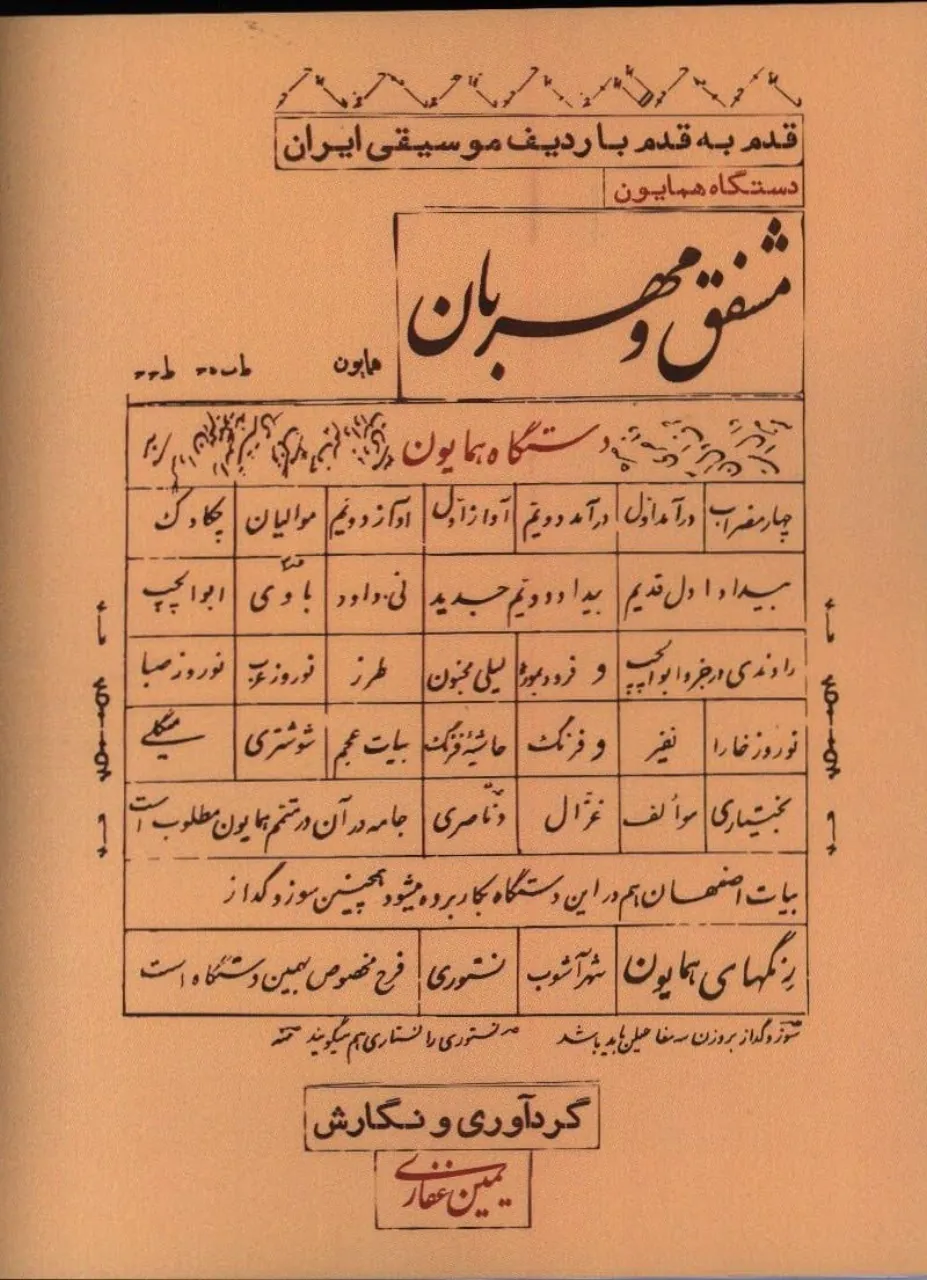 قدم به قدم با ردیف موسیقی ایران
دستگاه همایون
مشفق و مهربان
همایون
دستگاه همایون
چهار مضراب درآمد اول درآمد دویّم آواز اول آواز دویّم موالیان چکاوک
بیداد اول قدیم بیداد دویّم جدید نی داود باوی ابوالچپ
راوندی در جزو ابوالچپ و فرود لیلی مجنون طرز نوروز عرب نوروز صبا
نوروز خارا نفیر و فرنگ حاشیهٔ فرنگ بیات عجم شوشتری میگلی
بختیاری مؤالف غزّال دنّاصری جامه دران در متمم همایون مطلوب است
بیات اصفهان هم در این دستگاه بکار برده میشود همچنین سوز و گداز
رنگهای همایون شهرآشوب نستوری فرح مخصوص بهمین دستگاه است
سوز و گداز بروزن باید باشد نستوری را نستاری هم میگویند
گردآوری و نگارش
یمین غفاری